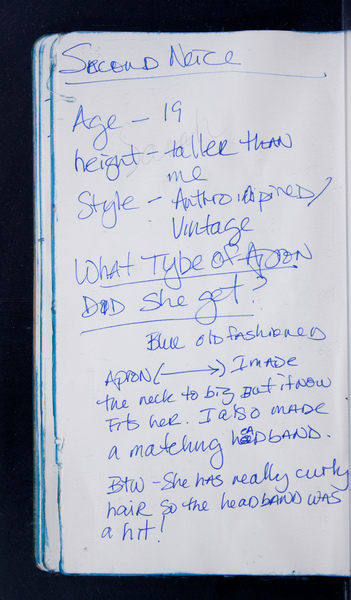 Second Neice
Age - 19
height - taller than
me
Style - Anthroinspired/
Vintage
What Type of Apron
Did She get?
Blue old fashioned
Apron (⟷) I made
the neck to big but it now
Fits her. I also made
a matching headband.
Btw - She has really curly
hair so the headband was
a hit!